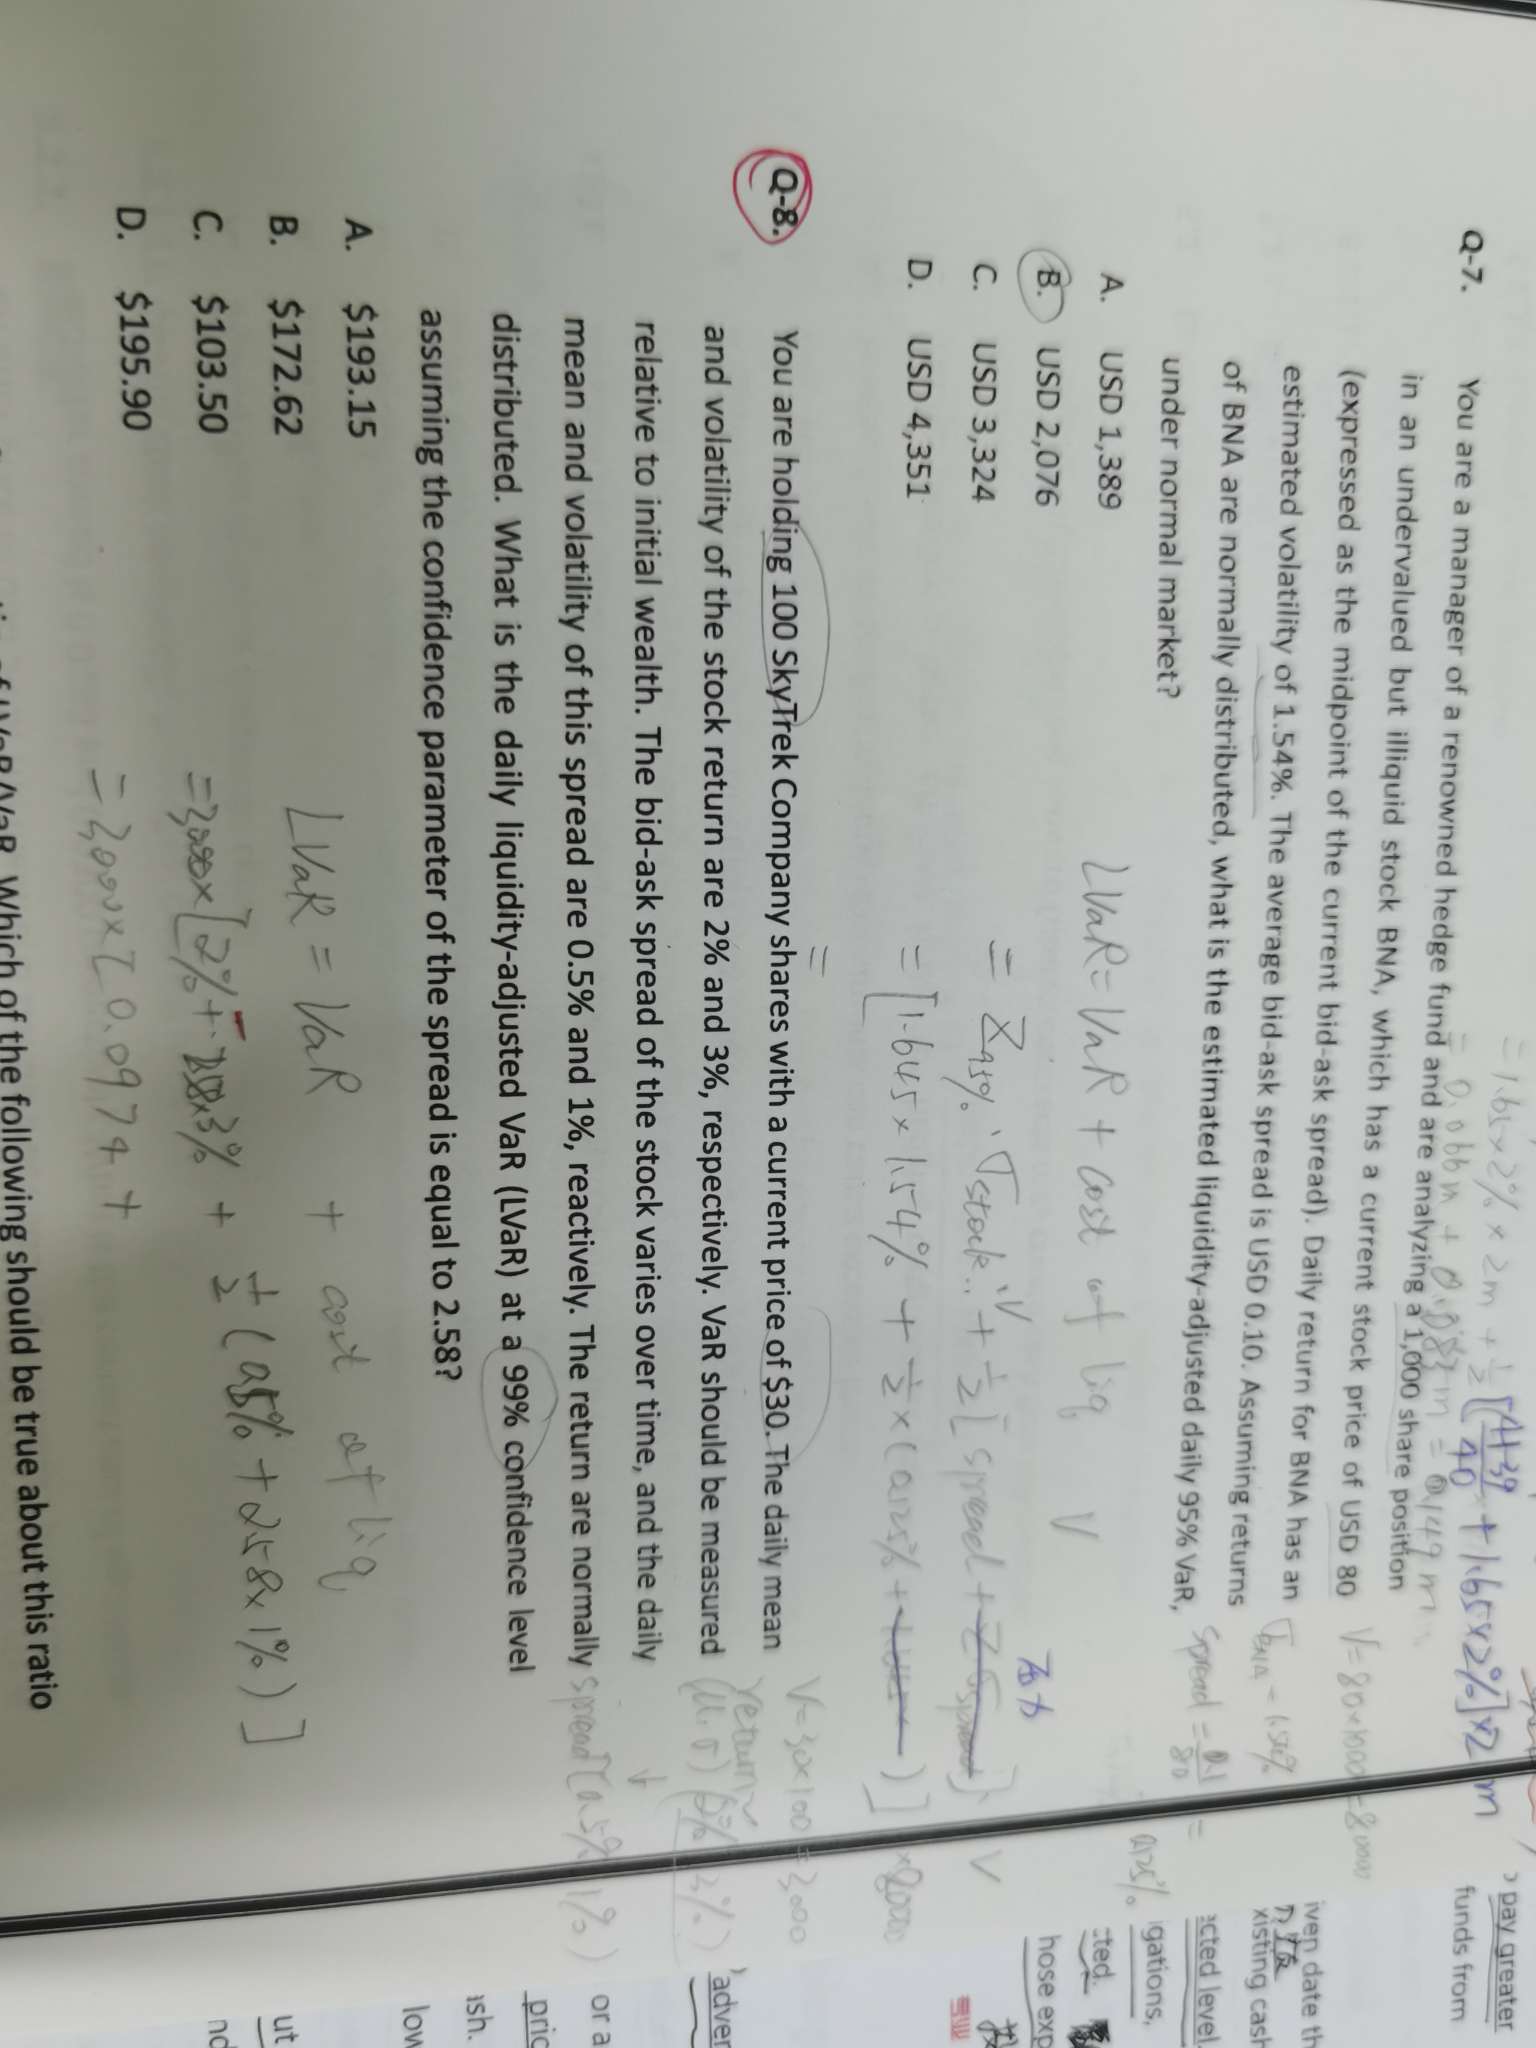 = 1.65 × 2% × 2m + 1/2 [41-39/40 + 1.65 × 2%] × 2m
Q-7. You are a manager of a renowned hedge fund and are analyzing a 1,000 share position
in an undervalued but illiquid stock BNA, which has a current stock price of USD 80
(expressed as the midpoint of the current bid-ask spread). Daily return for BNA has an
estimated volatility of 1.54%. The average bid-ask spread is USD 0.10. Assuming returns
of BNA are normally distributed, what is the estimated liquidity-adjusted daily 95% VaR,
under normal market?
V=80×1000=80000
σBNA = 1.54%
spread = 0.1/80 = 0.125%
A. USD 1,389
B. USD 2,076
C. USD 3,324
D. USD 4,351
LVaR = VaR + cost of liq
= Z95% · σstock · V + 1/2 [spread + Zσspread] · V
= [1.645 × 1.54% + 1/2 × (0.125% + )] × 80000
=
Q-8. You are holding 100 SkyTrek Company shares with a current price of $30. The daily mean
and volatility of the stock return are 2% and 3%, respectively. VaR should be measured
relative to initial wealth. The bid-ask spread of the stock varies over time, and the daily
mean and volatility of this spread are 0.5% and 1%, reactively. The return are normally
distributed. What is the daily liquidity-adjusted VaR (LVaR) at a 99% confidence level
assuming the confidence parameter of the spread is equal to 2.58?
V=30×100=3,000
return~
(μ.σ) (2% 3%)
spread (0.5% 1%)
A. $193.15
B. $172.62
C. $103.50
D. $195.90
LVaR = VaR + cost of liq
=3,000×[2%+ ×3% + 1/2 (0.5% + 2.58×1%)]
= 3,000×[0.0974 +
Which of the following should be true about this ratio
pay greater
funds from
iven date th
xisting cash
cted level
igations,
cted.
hose exp
adver
or a
pric
ish.
low
ut
nd